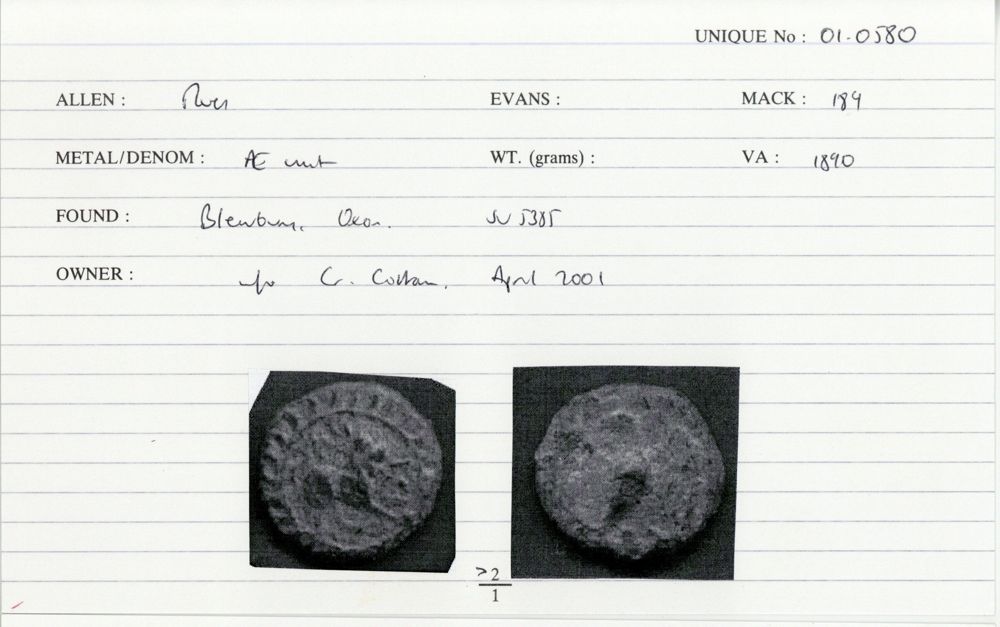 UNIQUE No : 01-0580
ALLEN : EVANS : MACK : 189
METAL/DENOM : Æ unit WT. (grams) : VA : 1890
FOUND : Blewbury, Oxon. SU 5385
OWNER : G. Cottam, April 2001
>2
1